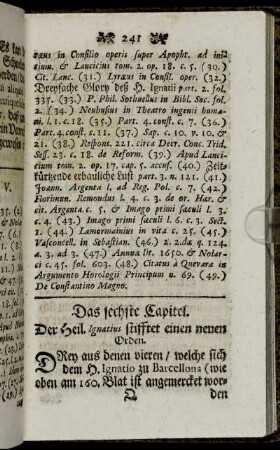 241
ræus in Consilio operis super Apopht. ad ini-
tium. & Lancicius tom. 2. op. 18. c. 5. (30.)
Cit. Lanc. (31.) Lyræus in Consil. oper. (32.)
Dreyfache Glory deß H. Ignatii part. 2. fol.
335. (33.) P. Phil. Sothuellus in Bibl. Soc. fol.
2. (34.) Neubusius in Theatro ingenii huma-
ni. l. 1. c. 18. (35.) Part. 4. const. c. 7. (36.)
Part. 4. const. c. 11. (37.) Sap. c. 10. v. 10. &
21. (38.) Respons. 221. circa Decr. Conc. Trid.
Sess. 23. c. 18. de Reform. (39.) Apud Lanci-
cium tom. 2. op. 17. cap. 5. access. (40.) Zeit-
kürtzende erbauliche Lust part. 3. n. 121. (41.)
Joann. Argenta l. ad Reg. Pol. c. 7. (42.)
Florimun. Remondus l. 4. c. 3. de or. Hær. &
cit. Argenta c. 5. & Imago primi sæculi l. 3.
c. 4. (43.) Imago primi sæculi l. 6. c. 3. sect.
2. (44.) Lamormainius in vita c. 25. (45.)
Vasconcell. in Sebastian. (46.) 2. 2. dæ q. 124.
a. 3. ad 3. (47.) Annuæ lit. 1650. & Nolar-
ci c. 45. fol. 603. (48.) Citatus à Quevara in
Argumento Horologii Principum u. 69. (49.)
De Constantino Magno.
Das sechste Capitel.
Der Heil. Ignatius stifftet einen neuen
Orden.
DRey aus denen vieren / welche sich
dem H. Ignatio zu Barcellona (wie
oben am 160. Blat ist angemercket wor-
Q
den
V.